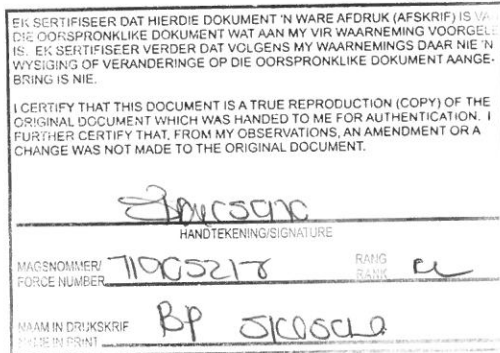 EK SERTIFISEER DAT HIERDIE DOKUMENT 'N WARE AFDRUK (AFSKRIF) IS
DIE OORSPRONKLIKE DOKUMENT WAT AAN MY VIR WAARNEMING VOORGELE
IS. EK SERTIFISEER VERDER DAT VOLGENS MY WAARNEMINGS DAAR NIE 'N
WYSIGING OF VERANDERINGE OP DIE OORSPRONKLIKE DOKUMENT AANGE-
BRING IS NIE.
I CERTIFY THAT THIS DOCUMENT IS A TRUE REPRODUCTION (COPY) OF THE
ORIGINAL DOCUMENT WHICH WAS HANDED TO ME FOR AUTHENTICATION. I
FURTHER CERTIFY THAT, FROM MY OBSERVATIONS, AN AMENDMENT OR A
CHANGE WAS NOT MADE TO THE ORIGINAL DOCUMENT.
HANDTEKENING/SIGNATURE
MAGSNOMMER/ RANG
FORCE NUMBER RANK
NAAM IN DRUKSKRIF BP
NAME IN PRINT